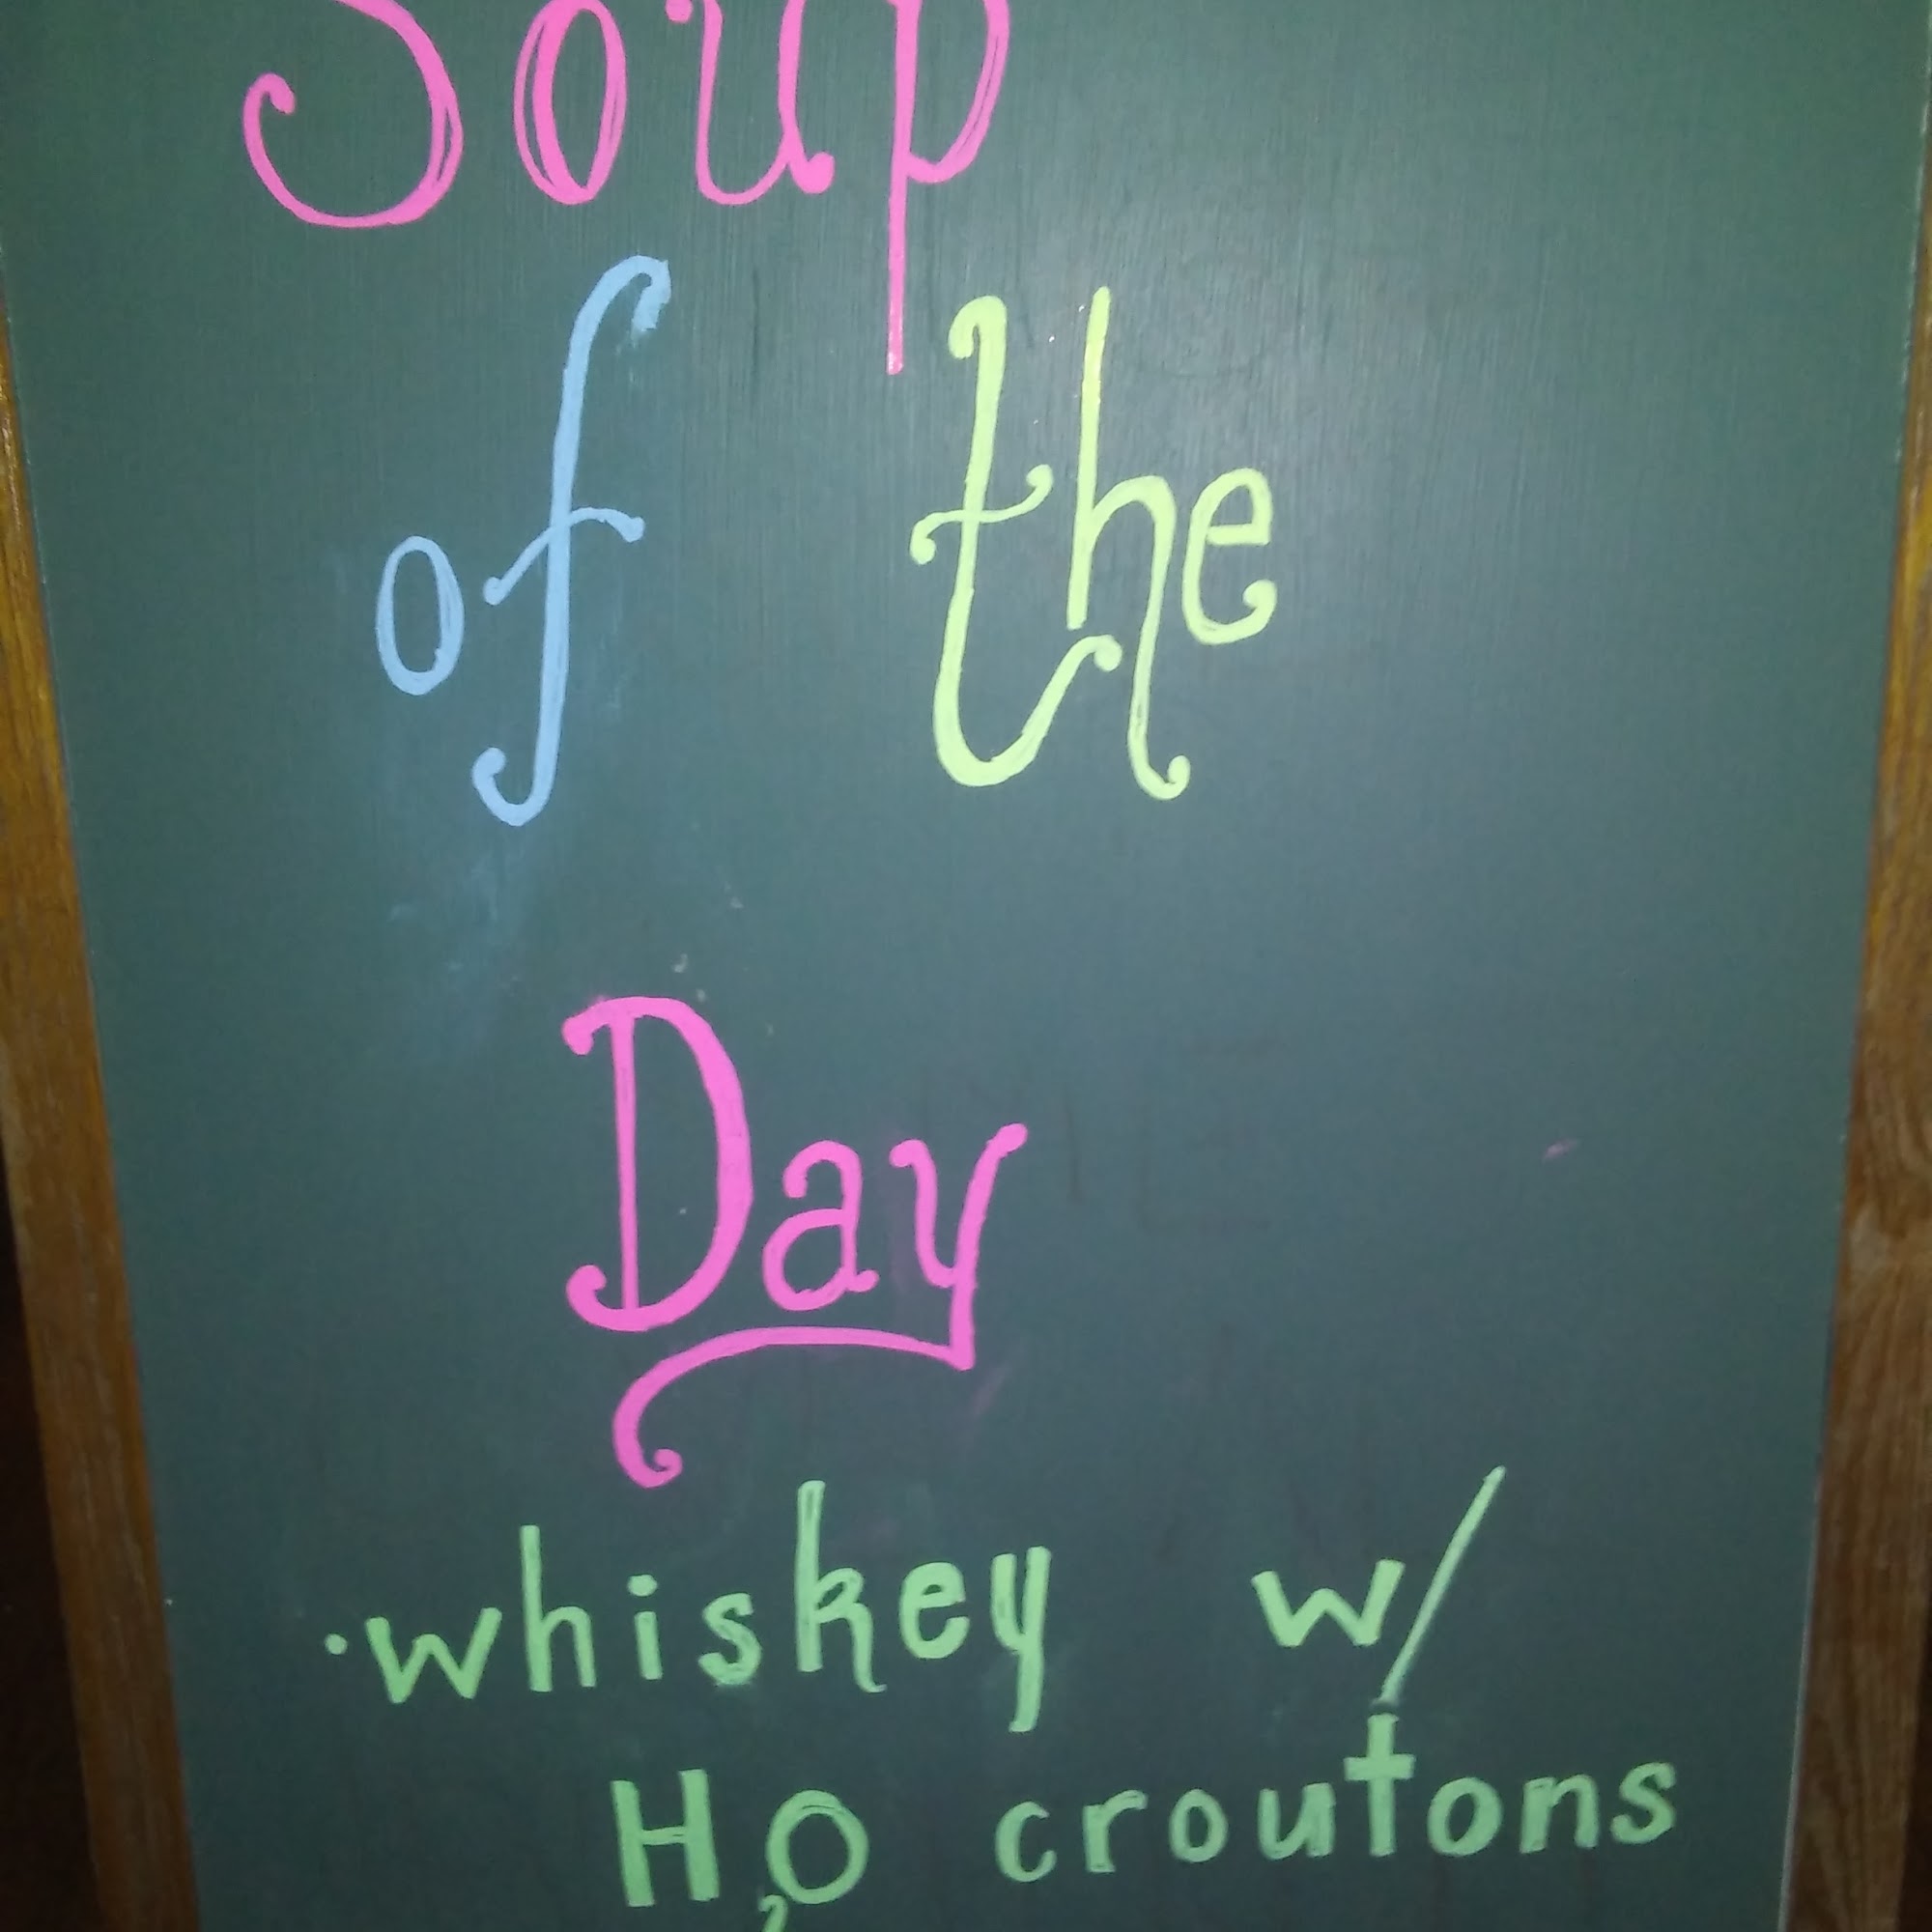 Soup
of the
Day
·whiskey w/
H₂O croutons